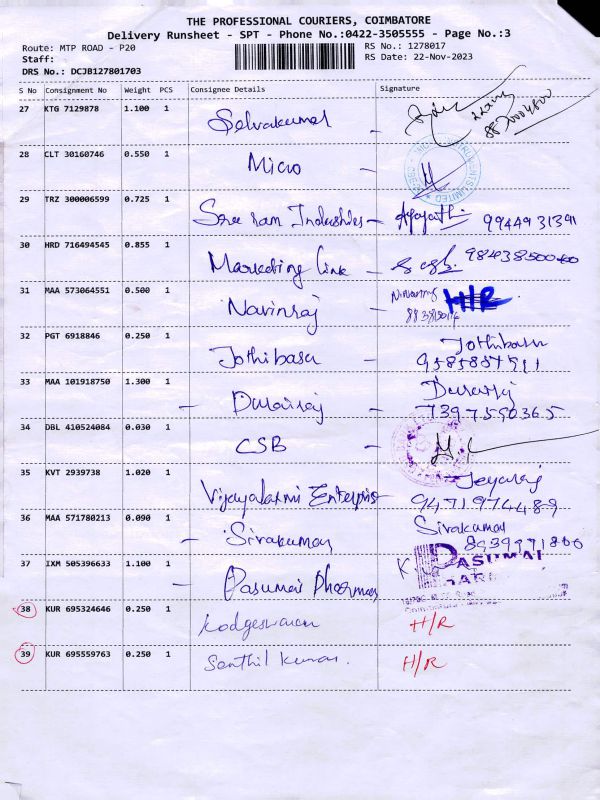 THE PROFESSIONAL COURIERS, COIMBATORE
Delivery Runsheet - SPT - Phone No.:0422-3505555 - Page No.:3
Route: MTP ROAD - P20
RS No.: 1278017
Staff:
RS Date: 22-Nov-2023
DRS No.: DCJB127801703
S No Consignment No Weight PCS Consignee Details Signature
27 KTG 7129878 1.100 1 Selvakumar -
28 CLT 30160746 0.550 1 Micro -
29 TRZ 300006599 0.725 1 Sree ram Industries - 9944931391
30 HRD 716494545 0.855 1 Marketing Link -
31 MAA 573064551 0.500 1 Navinraj - H/R
32 PGT 6918846 0.250 1 Jothibasu - Jothibasu
33 MAA 101918750 1.300 1 - Durairaj - Durairaj
7397590365
34 DBL 410524084 0.030 1 CSB -
35 KVT 2939738 1.020 1 Vijayalaxmi Enterprise Jeyaraj
9471974489
36 MAA 571780213 0.090 1 - Sivakumar Sivakumar
37 IXM 505396633 1.100 1 - Pasumai Pharmacy PASUMAI
38 KUR 695324646 0.250 1 H/R
39 KUR 695559763 0.250 1 Senthil Kumar. H/R